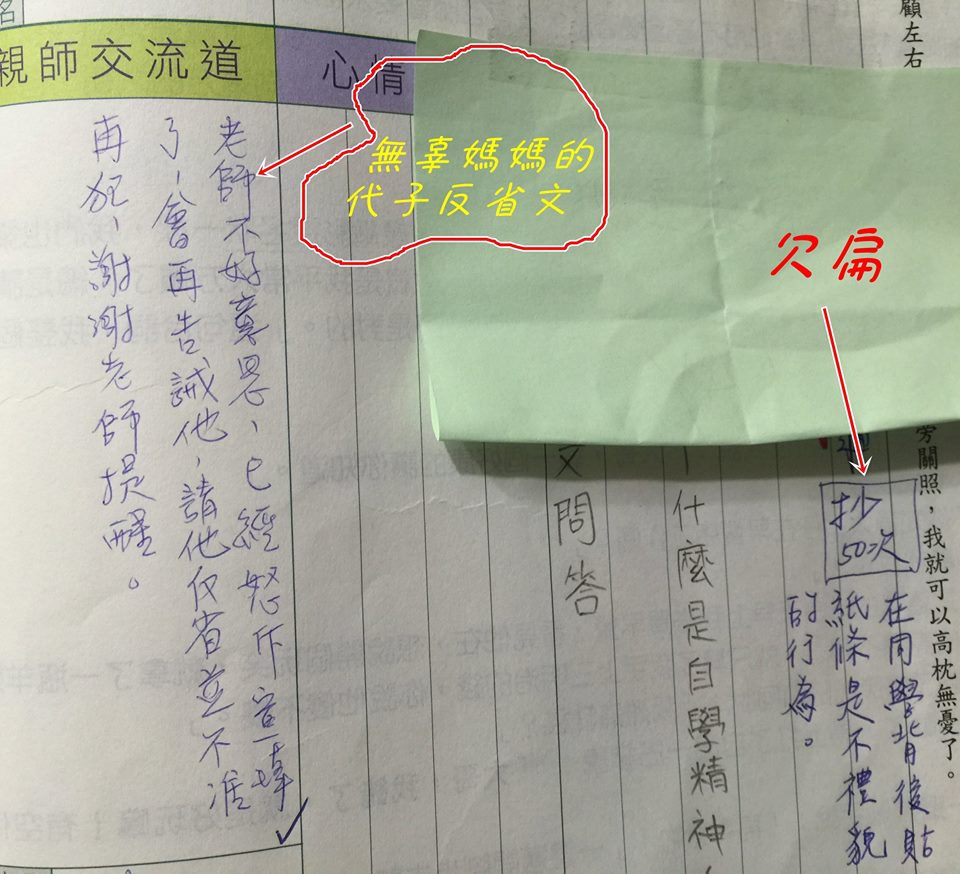 顧左右
旁關照，我就可以高枕無憂了。
欠扁
抄
50次
在同學背後貼
紙條是不禮貌
的行為。
什麼是自學精神
文問答
心情
無辜媽媽的
代子反省文
名
親師交流道
老師不好意思、已經怒斥宣
了，會再告誡他，請他反省並不准
再犯，謝謝老師提醒。